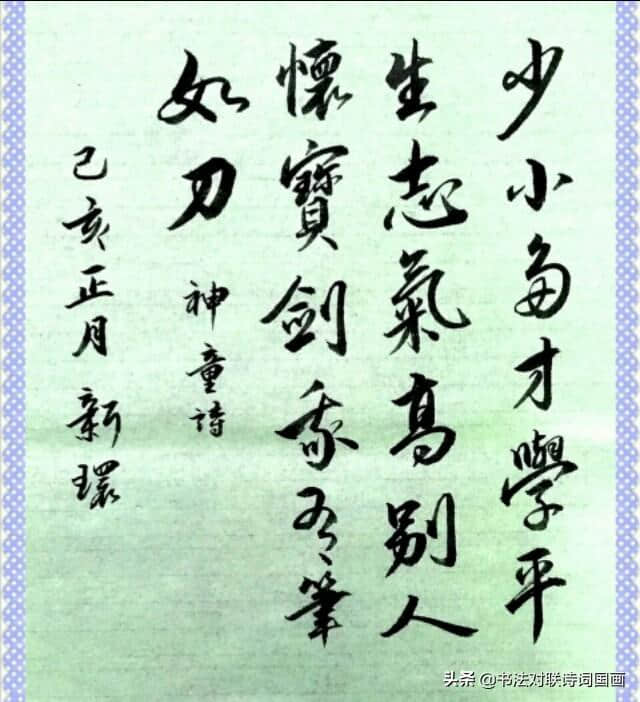 少小多才學平
生志氣高別人
懷寶劍我有筆
如刀
神童詩
己亥正月新環
头条 @书法对联诗词国画